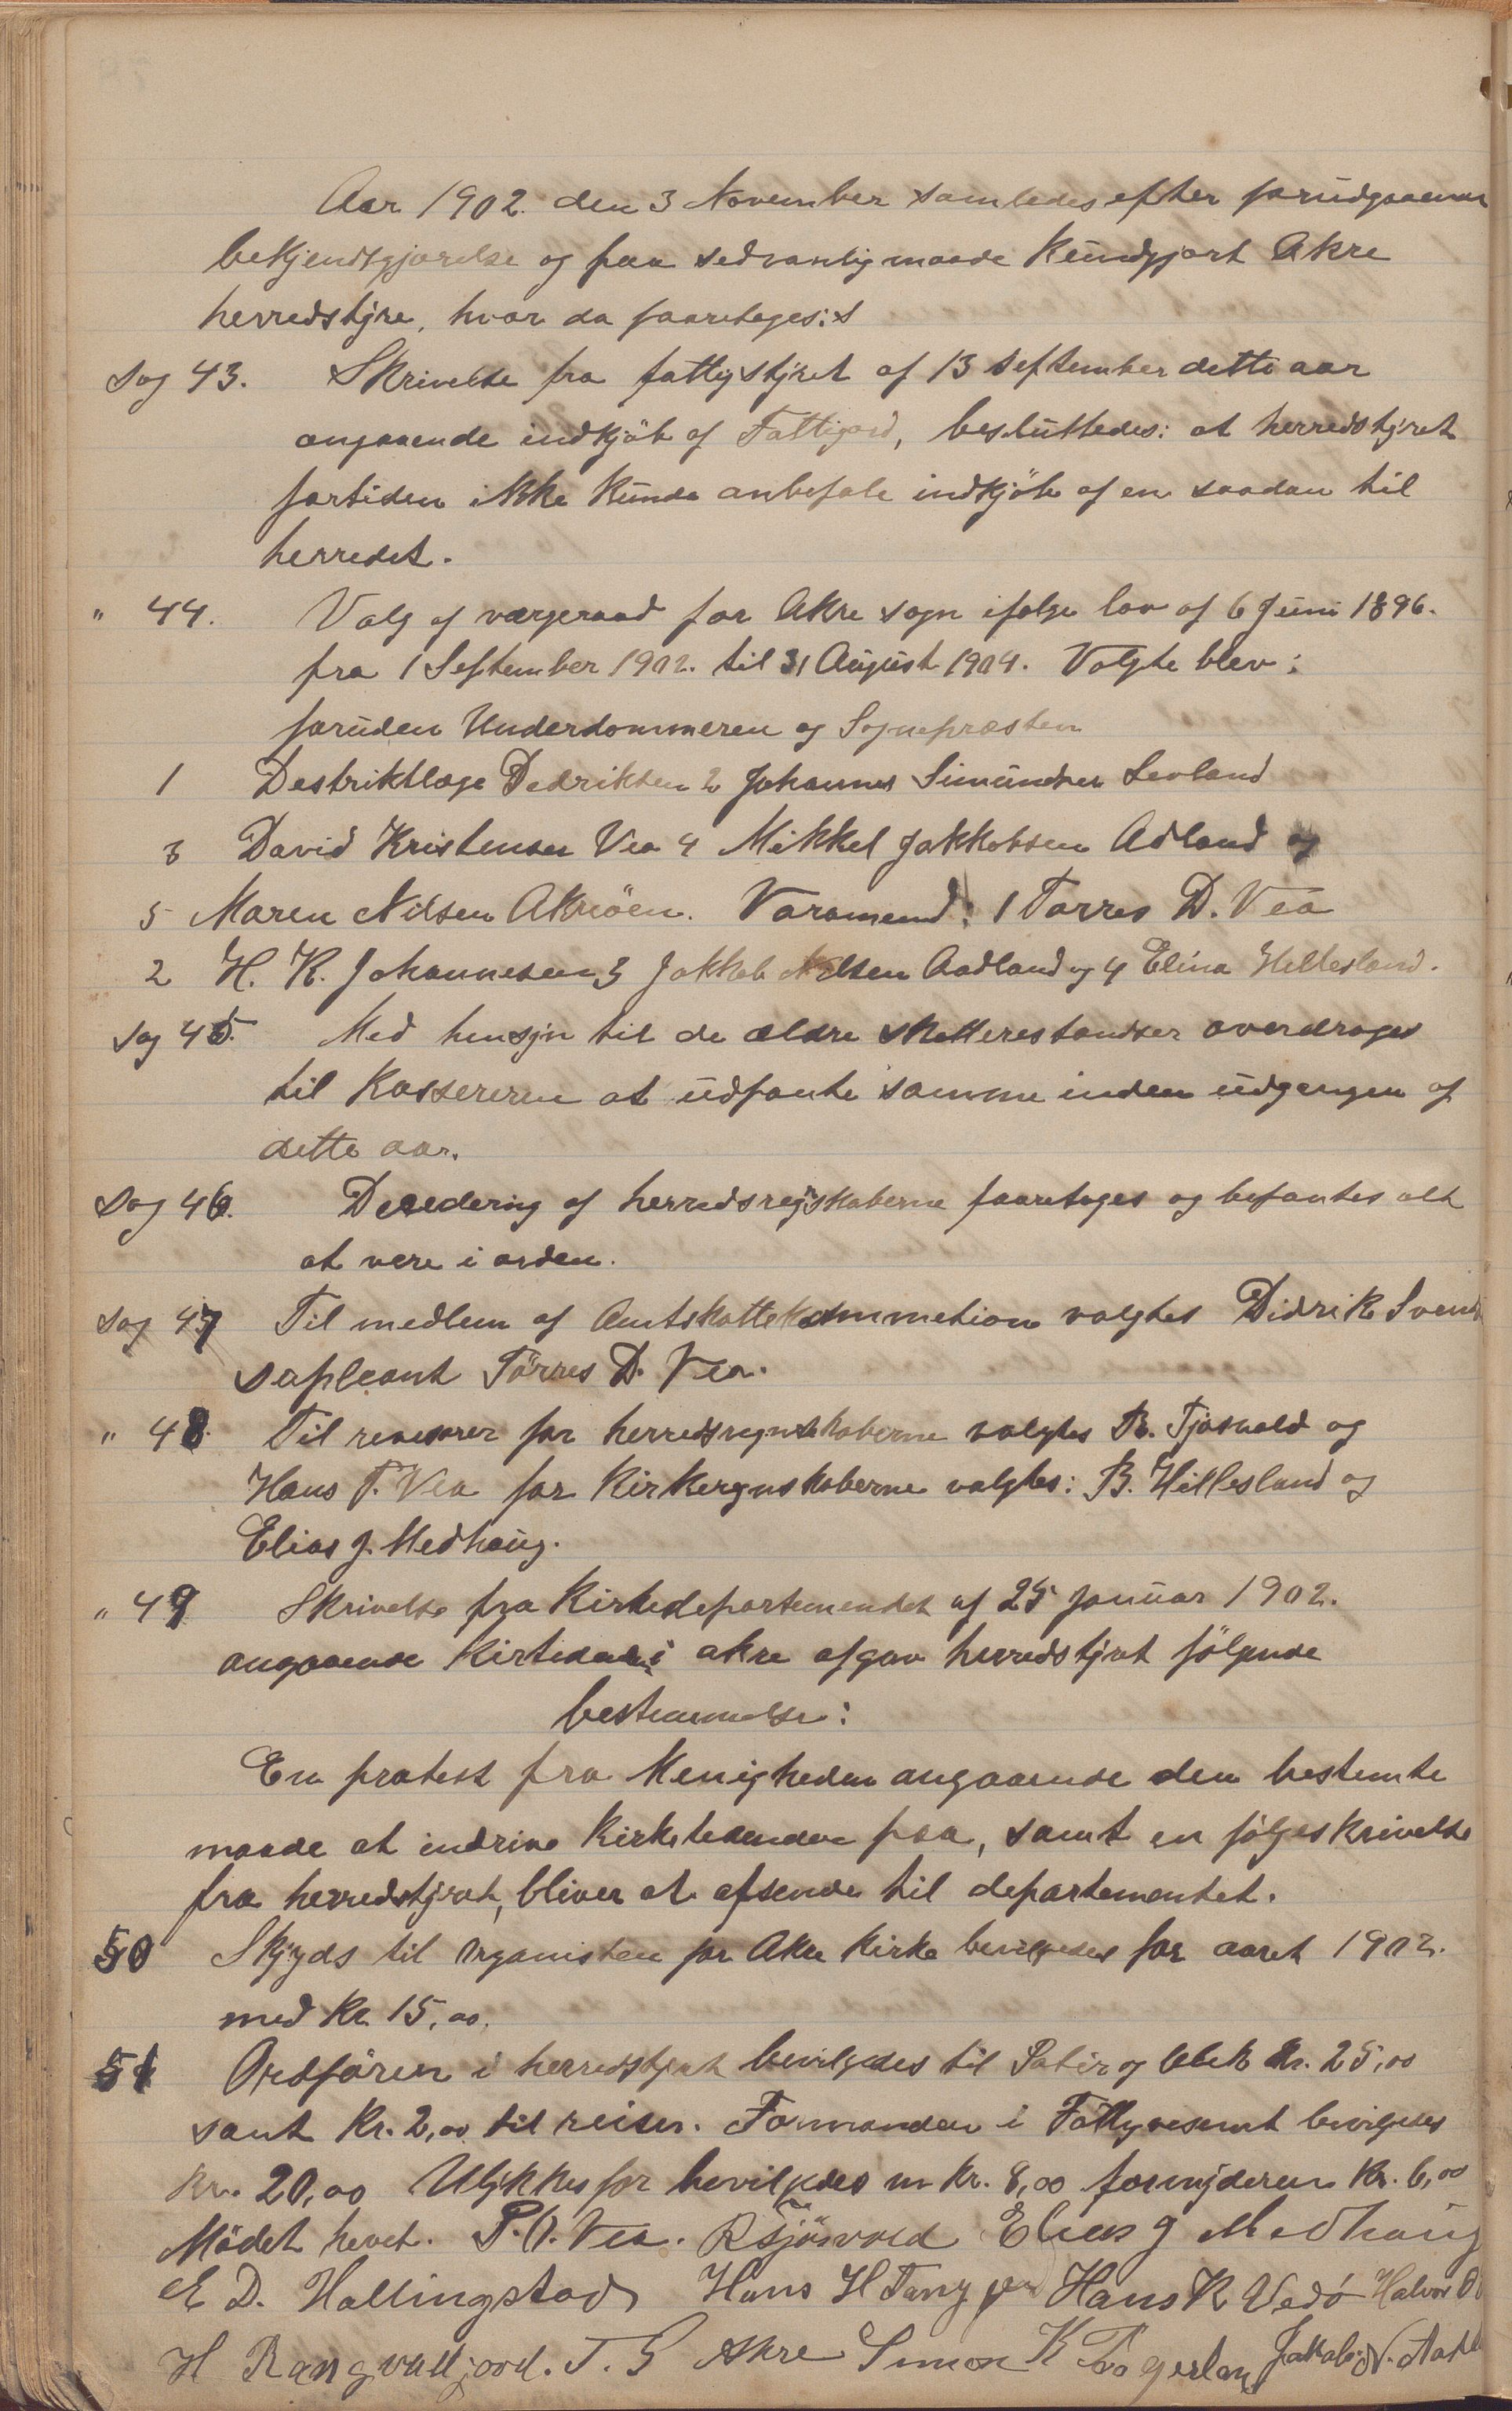 Aar 1902. den 3 November samledes efter forudgaaende
bekjendtgjørelse og paa sedvanlig maade kundgjort Akre
herredstyre, hvor da foaretoges:
Sag 43. Skrivelse fra fattigstyret af 13 September dette aar
angaaende indkjöb af Fattigaard, besluttedes: at herredstyret
fortiden ikke kunde anbefale indkjöb af en saadan til
herredet.
" 44. Valg af værgeraad for Akre sogn ifølge lov af 6 Juni 1896.
fra 1 September 1902. til 31 August 1904. Valgte blev:
foruden Underdommeren og Sognepræsten
1 Destriktlæge Dedriksen 2 Johannes Simundsen Sevland
3 David Kristensen Vea 4 Mikkel Jakkobsen Adland og
5 Maren Nilsen Akreöen. Varamend: 1 Tørres D. Vea
2 H. K. Johannesen 3 Jakkob Nilsen Aadland og 4 Elina Hillesland.
Sag 45. Med hensyn til de ældre skatterestandser overdroges
til Kassereren at udpante samme inden udgangen af
dette aar.
Sag 46. Decedering af herredsregskaberne foaretoges og befantes alt
at være i orden.
Sag 47 Til medlem af Amtskattekommetion valgtes Didrik Svend
supleant Törres D. Vea.
" 48. Til revesorer for herredsregnskaberne valgtes R. Tjøsvold og
Hans T. Vea for Kirkeregnskaberne valgtes: B. Hillesland og
Elias J. Medhaug.
" 49 Skrivelse fra Kirkedepartementet af 25 Januar 1902.
angaaende Kirtiden i akre afgav herredstyret følgende
bestemmelse:
En protest fra Menigheden angaaende den bestemte
maade at indrive Kirketienden paa, samt en følgeskrivelse
fra herredstyret, bliver at afsende til departementet.
50 Skyds til organisten for Akre Kirke bevilgedes for aaret 1902.
med Kr. 15,00.
51 Ordføren i herredstyret bevilgedes til Papir og blek Kr. 25,00
samt Kr. 2,00 til reiser. Formanden i Fattigvesenet bevilgedes
Kr. 20,00 Ulykkesfor bevilgedes Kr. 8,00 formynderen Kr. 6,00
Mødet hevet. P. O. Vea. R Tjösvold Elias J Medhaug
E D. Hallingstad Hans H Tang Hans K Vedö Halvor
H Rangvalljord. T. G Akre Simon K Fagerland Jakob N. Aadl